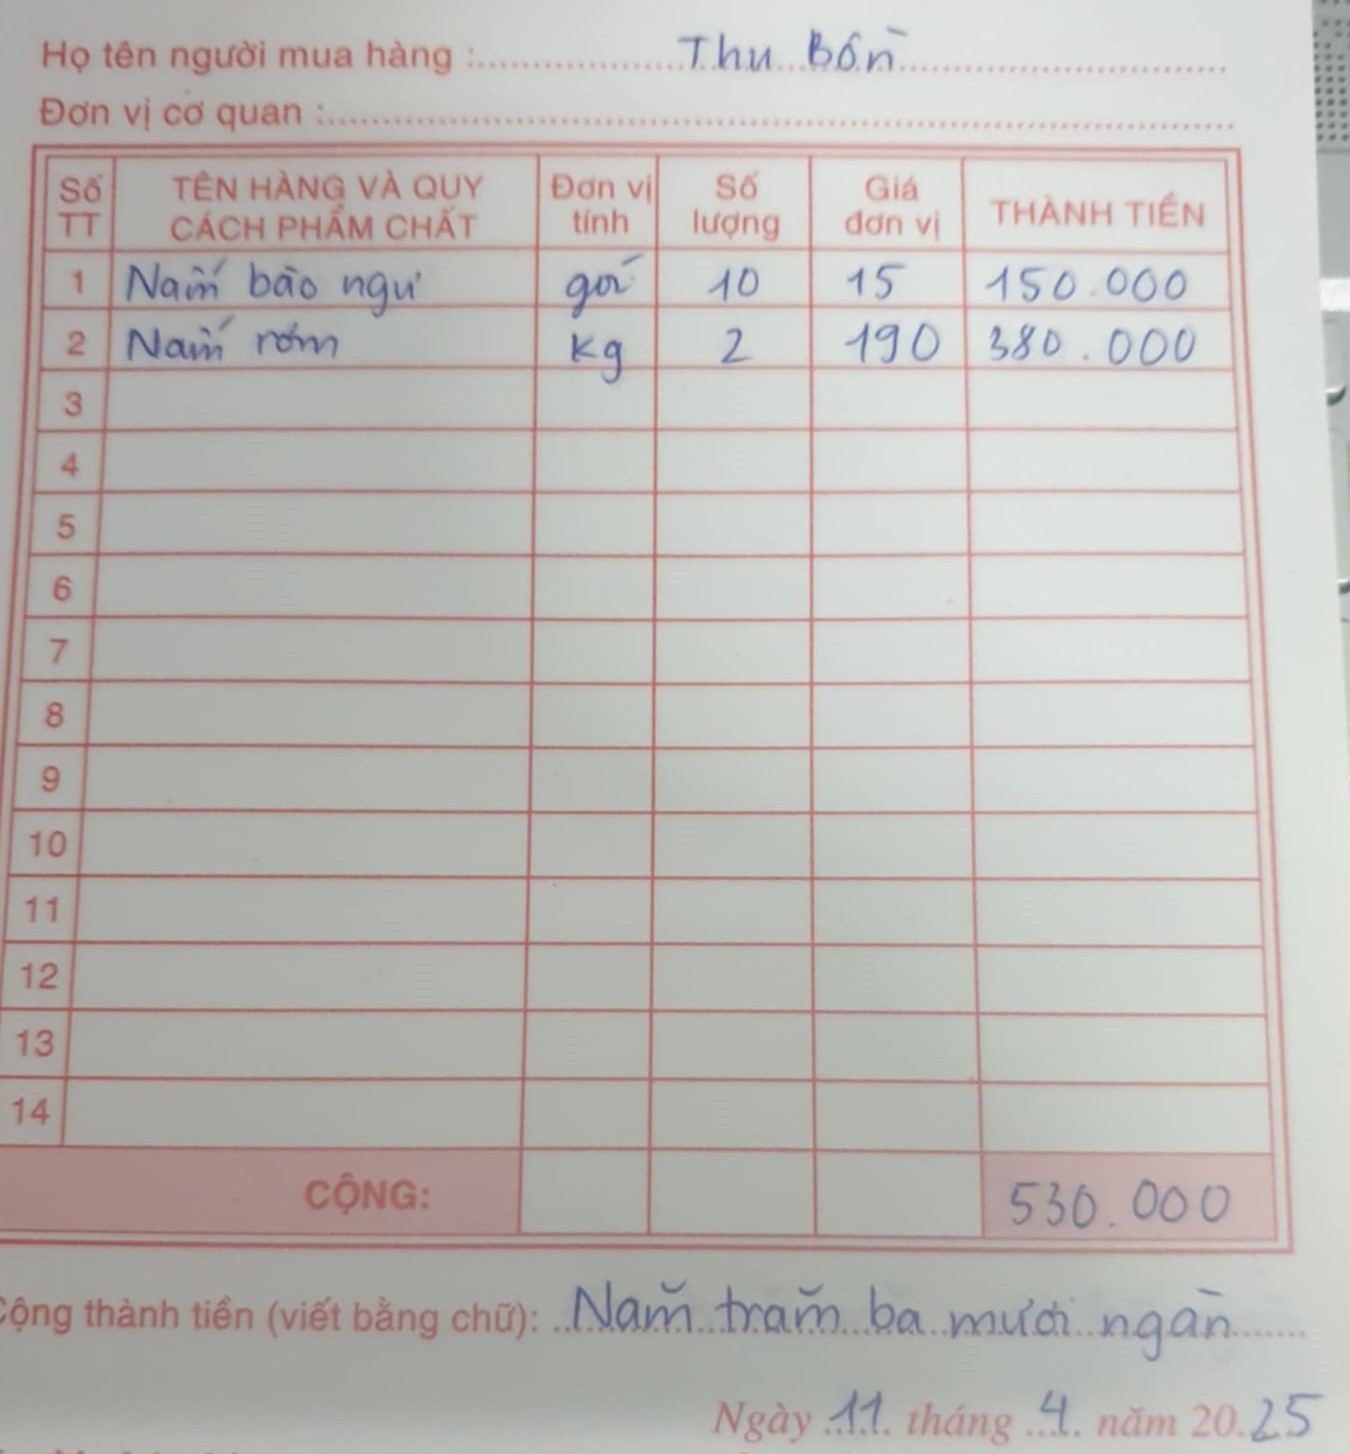 Họ tên người mua hàng : Thu Bồn
Đơn vị cơ quan :
Số TT TÊN HÀNG VÀ QUY CÁCH PHẨM CHẤT Đơn vị tính Số lượng Giá đơn vị THÀNH TIỀN
1 Nấm bào ngư gói 10 15 150.000
2 Nấm rơm kg 2 190 380.000
3
4
5
6
7
8
9
10
11
12
13
14
CỘNG: 530.000
Cộng thành tiền (viết bằng chữ): Năm trăm ba mươi ngàn
Ngày 11 tháng 4 năm 2025